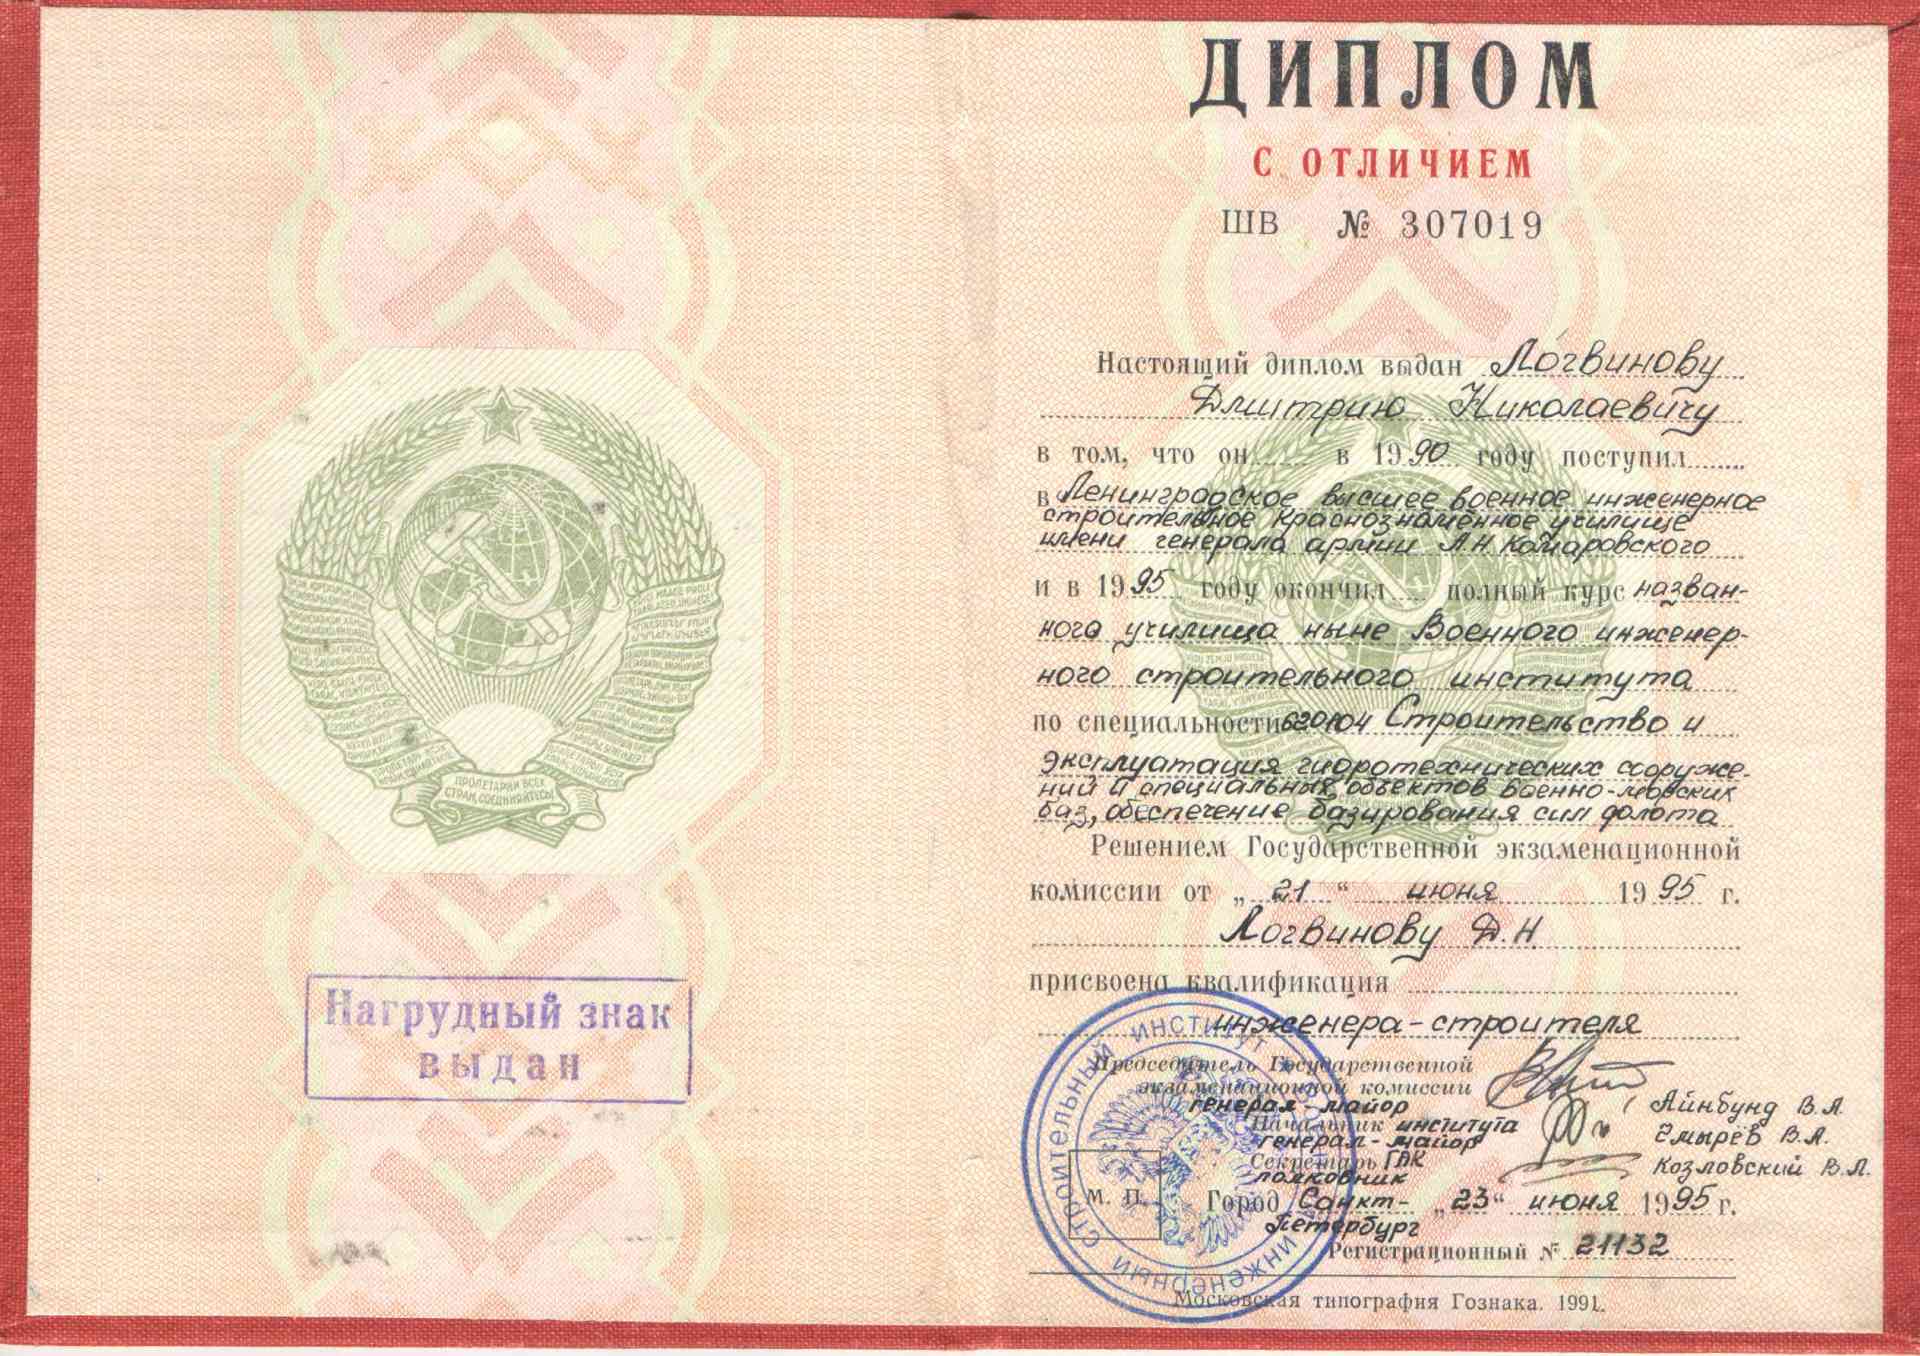 ПРОЛЕТАРИИ ВСЕХ
СТРАН, СОЕДИНЯЙТЕСЬ!
Нагрудный знак
выдан
ДИПЛОМ
С ОТЛИЧИЕМ
ШВ № 307019
Настоящий диплом выдан Логвинову
Дмитрию Николаевичу
в том, что он в 1990 году поступил
в Ленинградское высшее военное инженерное
строительное Краснознамённое училище
имени генерала армии А.Н. Комаровского
и в 1995 году окончил полный курс назван-
ного училища ныне Военного инженер-
ного строительного института
по специальности 620104 Строительство и
эксплуатация гидротехнических сооруже-
ний и специальных объектов военно-морских
баз, обеспечение базирования сил флота
Решением Государственной экзаменационной
комиссии от „21“ июня 1995 г.
Логвинову Д.Н
присвоена квалификация
инженера-строителя
Председатель Государственной
экзаменационной комиссии
генерал-майор Айнбунд В.А.
Начальник института
генерал-майор Змырёв В.А.
Секретарь ГАК
полковник Козловский В.Л.
М. П. Город Санкт- „23“ июня 1995 г.
Петербург
Регистрационный № 21132
Московская типография Гознака. 1991.
инженерный строительный институт